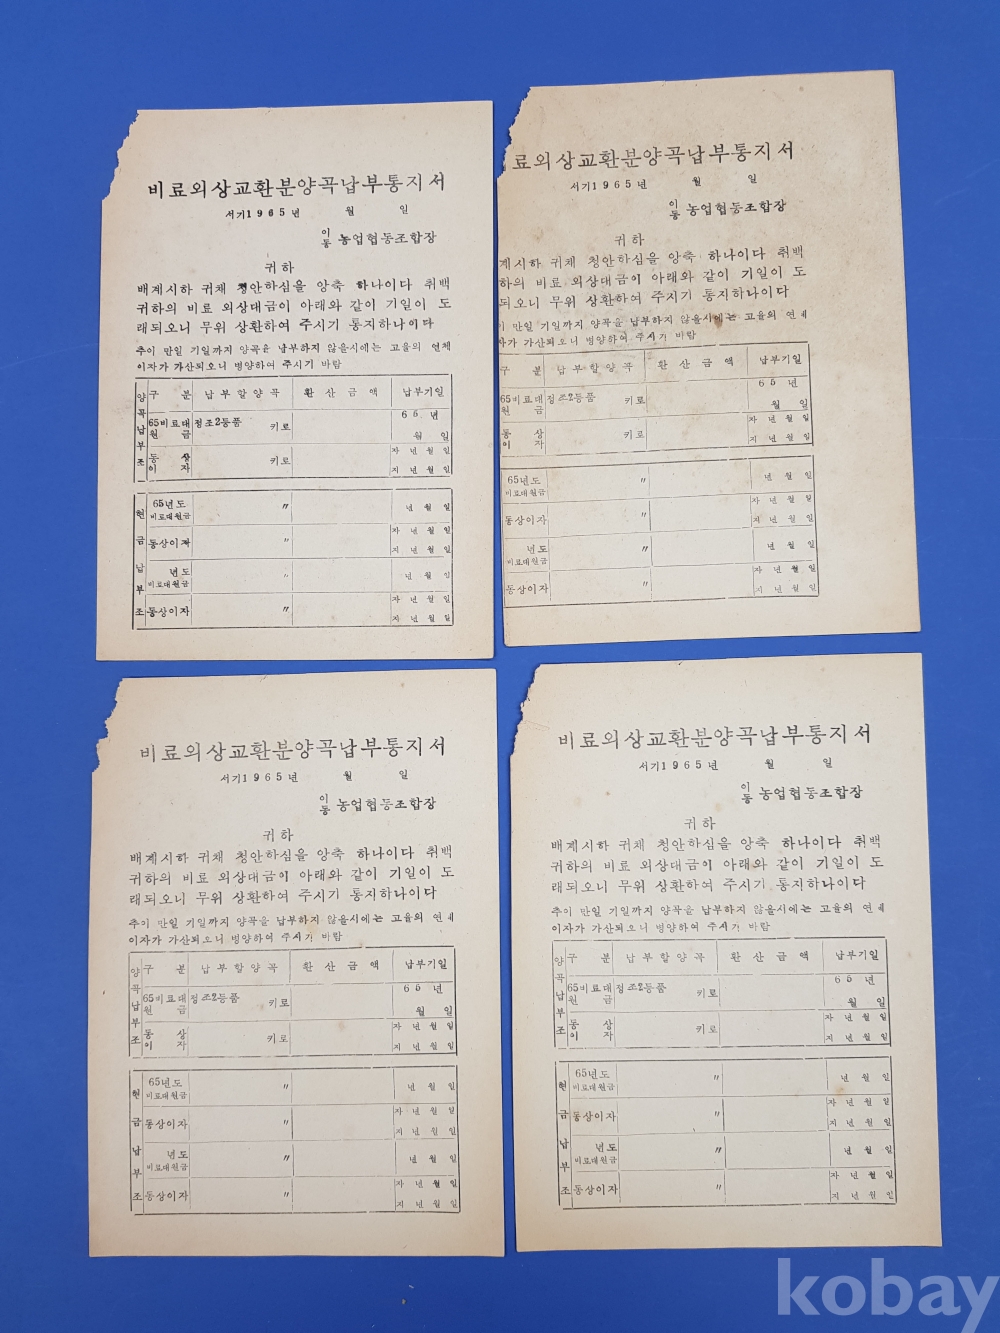 비료외상교환분양곡납부통지서
서기1965년 월 일
이동 농업협동조합장
귀하
배계시하 귀채 청안하심을 앙축 하나이다 취백
귀하의 비료 외상대금이 아래와 같이 기일이 도
래되오니 무위 상환하여 주시기 통지하나이다
추이 만일 기일까지 양곡을 납부하지 않을시에는 고율의 연체
이자가 가산되오니 병양하여 주시기 바람
양곡납부조 구 분 납부할양곡 환산금액 납부기일
65비료대원금 정조2등품 키로 65년 월 일
동상이자 키로 자 년 월 일
지 년 월 일
현금납부조 65년도비료대원금 〃 년 월 일
동상이자 〃 자 년 월 일
지 년 월 일
년도비료대원금 〃 년 월 일
동상이자 〃 자 년 월 일
지 년 월 일
료외상교환분양곡납부통지서
서기1965년 월 일
이동 농업협동조합장
귀하
계시하 귀채 청안하심을 앙축 하나이다 취백
하의 비료 외상대금이 아래와 같이 기일이 도
되오니 무위 상환하여 주시기 통지하나이다
만일 기일까지 양곡을 납부하지 않을시에는 고율의 연체
자가 가산되오니 병양하여 주시기 바람
구 분 납부할양곡 환산금액 납부기일
65비료대원금 정조2등품 키로 65년 월 일
동상이자 키로 자 년 월 일
지 년 월 일
65년도비료대원금 〃 년 월 일
동상이자 〃 자 년 월 일
지 년 월 일
년도비료대원금 〃 년 월 일
동상이자 〃 자 년 월 일
지 년 월 일
비료외상교환분양곡납부통지서
서기1965년 월 일
이동 농업협동조합장
귀하
배계시하 귀채 청안하심을 앙축 하나이다 취백
귀하의 비료 외상대금이 아래와 같이 기일이 도
래되오니 무위 상환하여 주시기 통지하나이다
추이 만일 기일까지 양곡을 납부하지 않을시에는 고율의 연체
이자가 가산되오니 병양하여 주시기 바람
양곡납부조 구 분 납부할양곡 환산금액 납부기일
65비료대원금 정조2등품 키로 65년 월 일
동상이자 키로 자 년 월 일
지 년 월 일
현금납부조 65년도비료대원금 〃 년 월 일
동상이자 〃 자 년 월 일
지 년 월 일
년도비료대원금 〃 년 월 일
동상이자 〃 자 년 월 일
지 년 월 일
비료외상교환분양곡납부통지서
서기1965년 월 일
이동 농업협동조합장
귀하
배계시하 귀채 청안하심을 앙축 하나이다 취백
귀하의 비료 외상대금이 아래와 같이 기일이 도
래되오니 무위 상환하여 주시기 통지하나이다
추이 만일 기일까지 양곡을 납부하지 않을시에는 고율의 연체
이자가 가산되오니 병양하여 주시기 바람
양곡납부조 구 분 납부할양곡 환산금액 납부기일
65비료대원금 정조2등품 키로 65년 월 일
동상이자 키로 자 년 월 일
지 년 월 일
현금납부조 65년도비료대원금 〃 년 월 일
동상이자 〃 자 년 월 일
지 년 월 일
년도비료대원금 〃 년 월 일
동상이자 〃 자 년 월 일
지 년 월 일
kobay